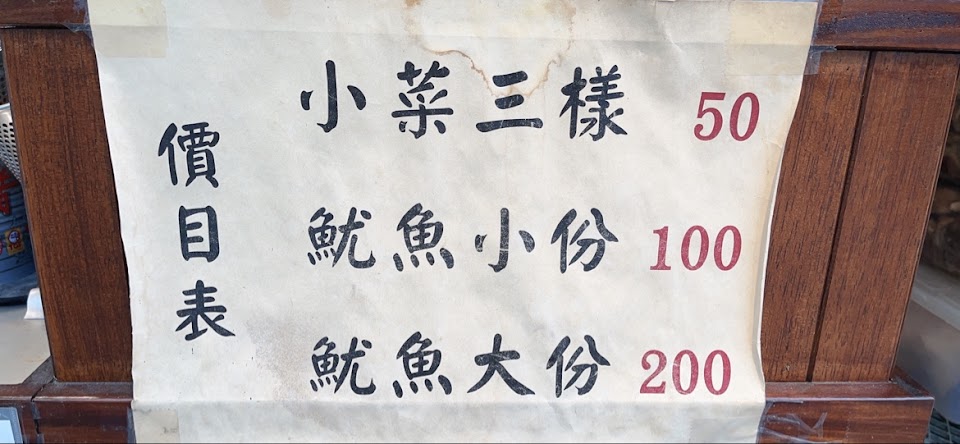 價目表
小菜三樣 50
魷魚小份 100
魷魚大份 200